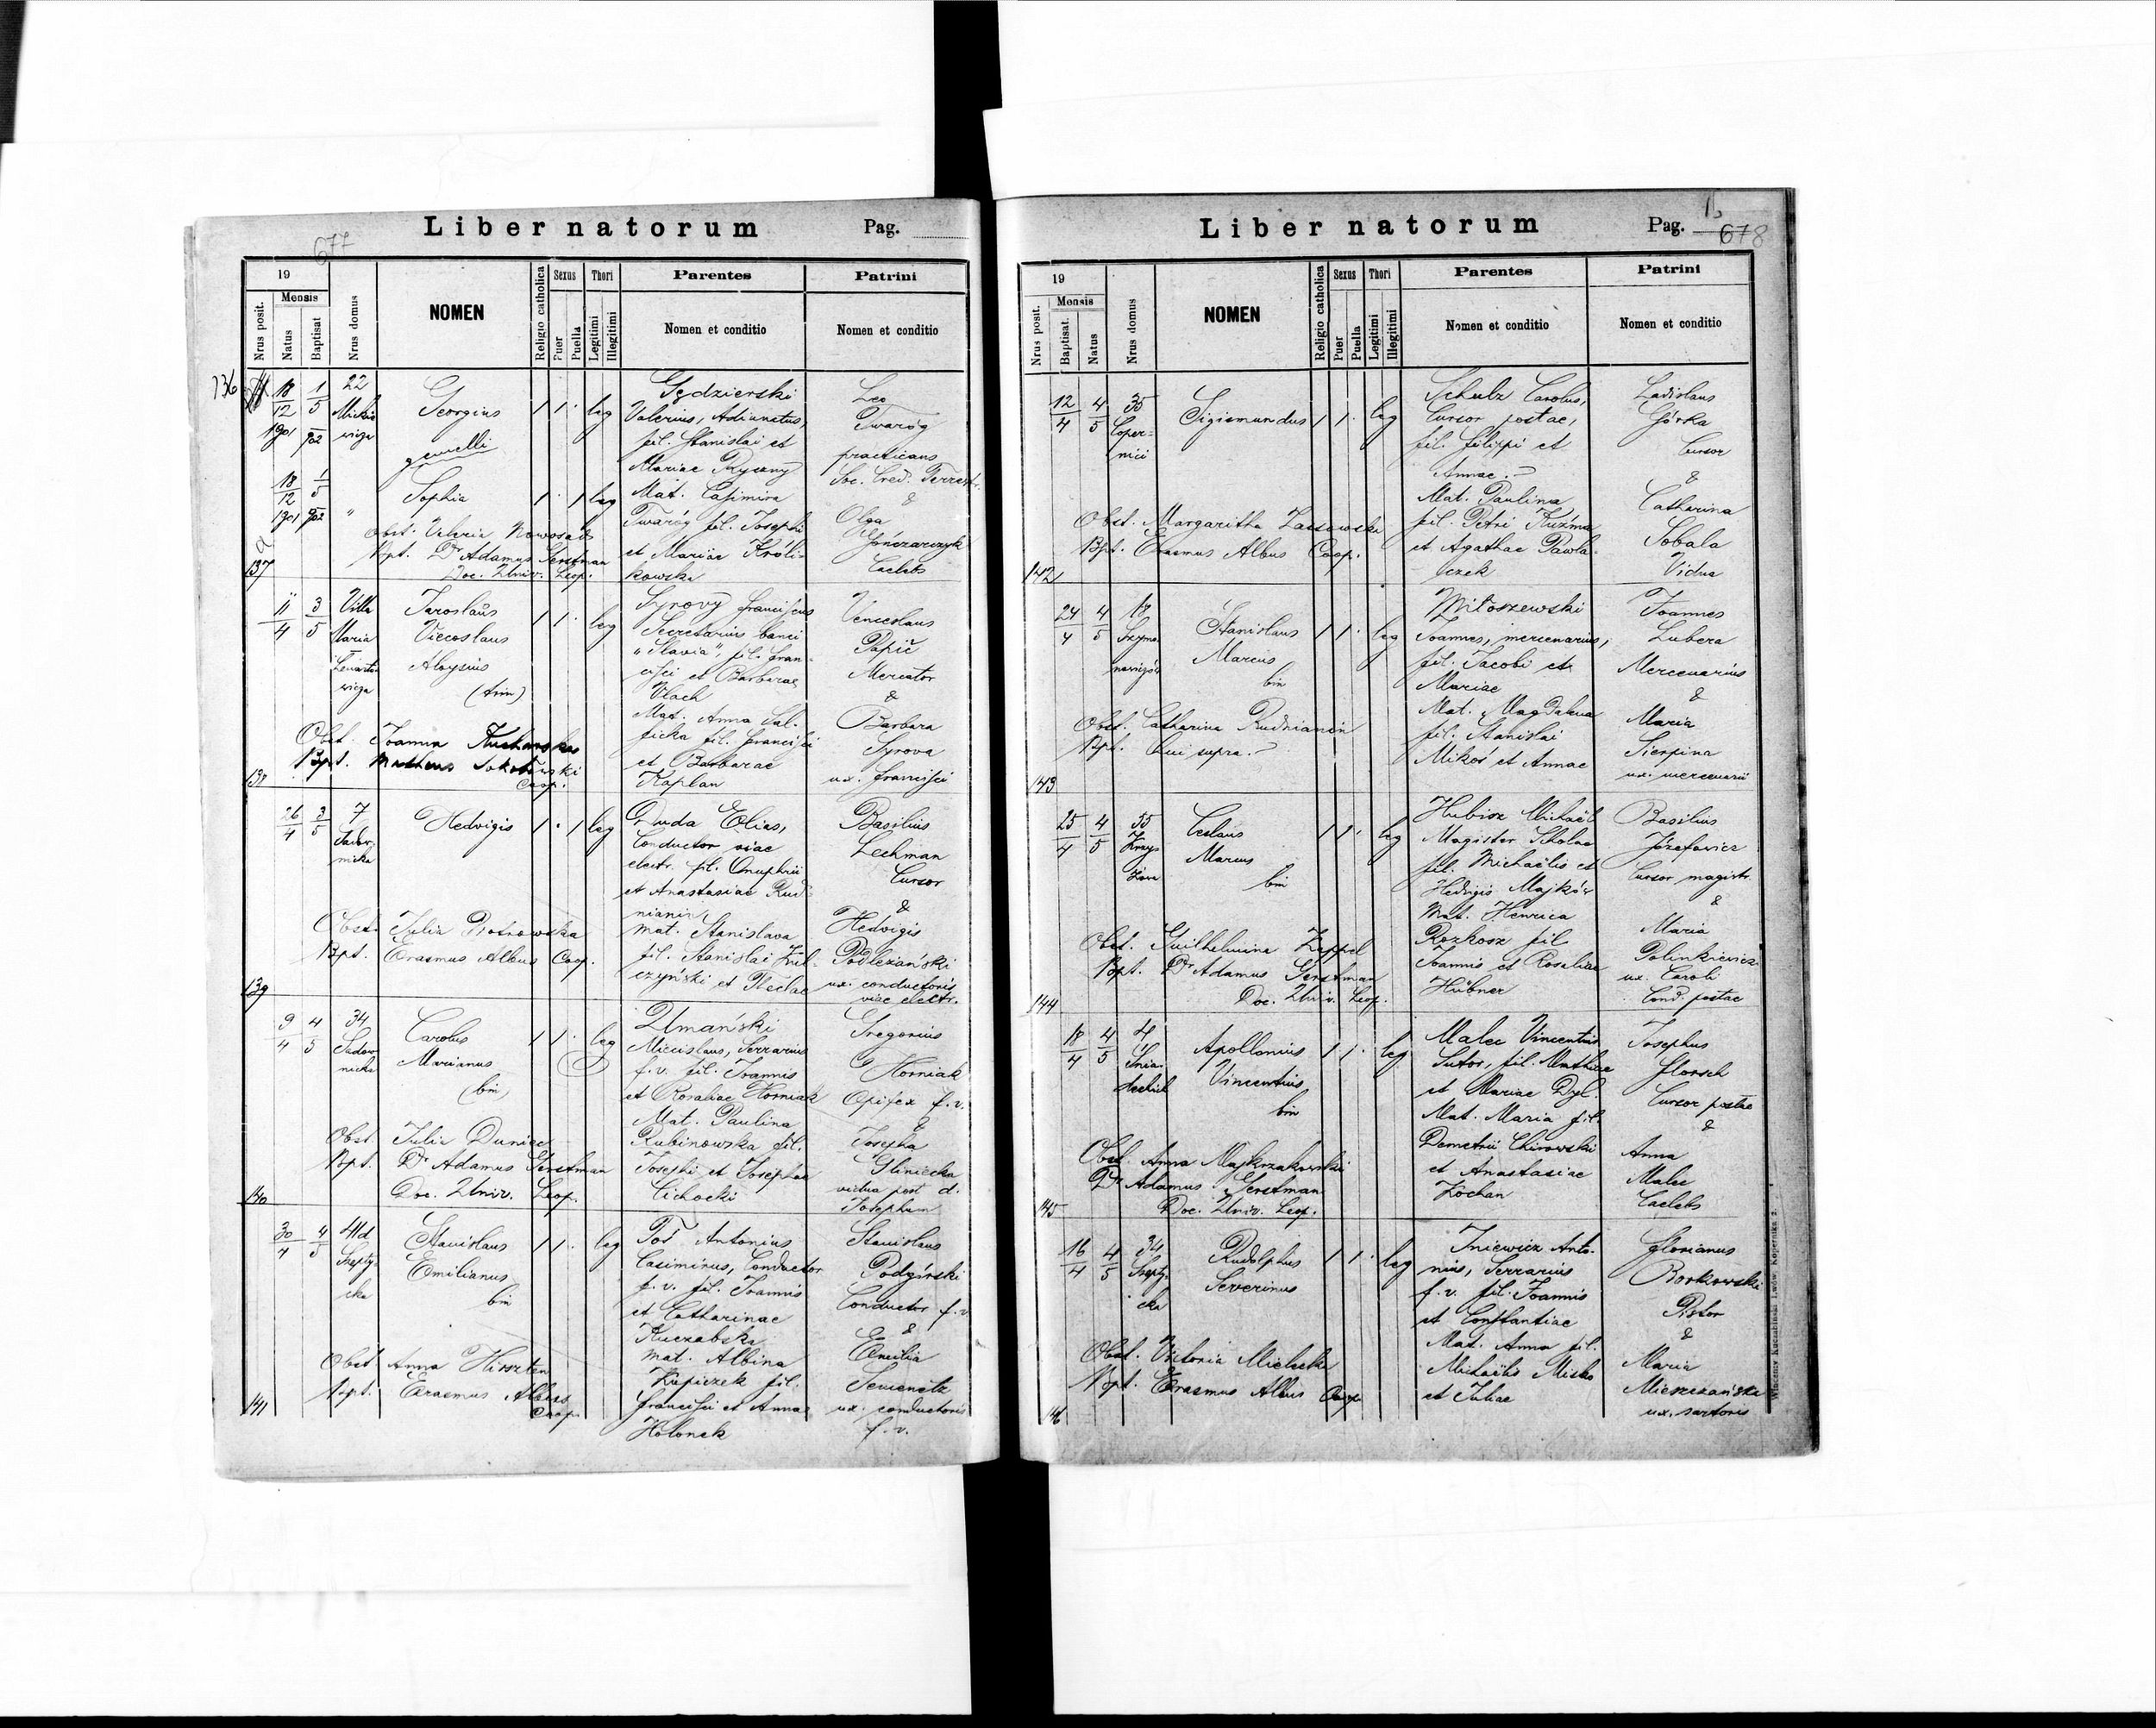 Liber natorum Pag.
677
19
Mensis
Nrus posit.
Natus
Baptisat
Nrus domus
NOMEN
Religio catholica
Sexus
Puer
Puella
Thori
Legitimi
Illegitimi
Parentes
Nomen et conditio
Patrini
Nomen et conditio
136
18/12 1901 1/5 902
22
Georgius
1 1 leg
gemelli
18/12 1901 1/5 902
"
Sophia
1 1 leg
Obst. Valeria Nowosad
Bpt. Dr Adamus Gerstman
Doc. Univ. Leop.
Valerius, Adiunctus,
fil. Stanislai et
Mariae
Mat. Casimira
Twaróg fil. Josephi
et Mariae Króli-
kowska
Leo
Twaróg
practicans
Soc. Cred. Terrestr.
&
Olga
Gonczarczyk
Caelebs
137
11/4 3/5
Villa
Maria
Jaroslaus
Viecoslaus
Aloysius
(trin)
1 1 leg
Syrový Franciscus
Secretarius banci
"Slavia", fil. Fran-
cisci et Barbarae
Vlach
Mat. Anna Sal-
ficka fil. Francisci
et Barbarae
Kaplan
Venceslaus
Papič
Mercator
&
Barbara
Syrova
ux. Francisci
Obst. Joanna
Bpt. Matheus
Coop.
138
26/4 3/5
7
Sador-
nicka
Hedvigis
1 1 leg
Duda Elias,
Conductor viae
electr. fil. Onuphrii
et Anastasiae Rud-
nianin
mat. Stanislava
fil. Stanislai Kul-
czyński et Theclae
Basilius
Lechman
Cursor
&
Hedvigis
Podleżański
ux. conductoris
viae electr.
Obst. Julia Piotrowska
Bpt. Erasmus Albus Coop.
139
9/4 4/5
34
Sador
nicka
Carolus
Marianus
(bin)
1 1 leg
Umański
Miecislaus, Serrarius
f. v. fil. Joannis
et Rosaliae Horniak
Mat. Paulina
Rubinowska fil.
Josephi et Josephae
Cichocki
Gregorius
Horniak
Opifex f. v.
&
Josepha
Gliniecka
vidua post d.
Josephum
Obst Julia Duniec
Bpt. Dr Adamus Gerstman
Doc. Univ. Leop.
140
30/4 4/5
41d
Szepty
cka
Stanislaus
Emilianus
bin
1 1 leg
Toś Antonius
Casimirus, Conductor
f. v. fil. Joannis
et Catharinae
Kuczabska
mat. Albina
Kupiczek fil.
Francisci et Annae
Holonek
Stanislaus
Podgórski
Conductor f. v.
&
Emilia
Semenetz
ux. conductoris
f. v.
Obst Anna Hirszten
Bpt. Erasmus Albus
Coop.
141
Liber natorum Pag.
678
19
Mensis
Nrus posit.
Baptisat.
Natus
Nrus domus
NOMEN
Religio catholica
Sexus
Puer
Puella
Thori
Legitimi
Illegitimi
Parentes
Nomen et conditio
Patrini
Nomen et conditio
12/4 4/5
35
Coper-
nici
Sigismundus
1 1 leg
Schulz Carolus,
Cursor postae,
fil. Filippi et
Annae ?
Mat. Paulina
fil. Petri Kuźma
et Agathae Pawla-
czek
Ladislaus
Górka
Cursor
&
Catharina
Sobala
Vidua
Obst. Margaritha
Bpt. Erasmus Albus Coop.
142
24/4 4/5
18
Szymo-
nowiczów
Stanislaus
Marcus
bin
1 1 leg
Miłoszewski
Joannes, mercenarius,
fil. Jacobi et
Mariae
Mat. Magdalena
fil. Stanislai
Mikoś et Annae
Joannes
Lubera
Mercenarius
&
Maria
Sierpina
ux. mercenarii
Obst. Catharina Rudnianin
Bpt. Qui supra.
143
25/4 4/5
55
Krzy-
żowa
Ceslaus
Marcus
bin
1 1 leg
Hubisz Michaël
Magister Scholae
fil. Michaëlis et
Hedvigis Majków
Mat. Henrica
Rozkosz fil
Joannis et Rosaliae
Hübner
Basilius
Józefowicz
Cursor magistr.
&
Maria
Polinkiewicz
ux. Caroli
Cond. postae
Obst. Guilhelmina Zeppel
Bpt. Dr Adamus Gerstman
Doc. Univ. Leop.
144
18/4 4/5
4
Śnia-
deckich
Apollonius
Vincentius
bin
1 1 leg
Malec Vincentius
Sutor, fil. Mathiae
et Mariae Dyl.
Mat. Maria fil.
Demetrii Chirowski
et Anastasiae
Kochan
Josephus
Florsch
Cursor postae
&
Anna
Malec
Caelebs
Obst. Anna
Dr Adamus Gerstman
Doc. Univ. Leop.
145
16/4 4/5
34
Szepty-
cka
Rudolphus
Severinus
1 1 leg
Iniewicz Anto-
nius, Serrarius
f. v. fil. Joannis
et Constantiae
Mat. Anna fil.
Michaëlis Misko
et Juliae
Florianus
Borkowski
Pistor
&
Maria
Mieszczańska
ux. sartoris
Obst. Victoria
Bpt. Erasmus Albus Coop.
146